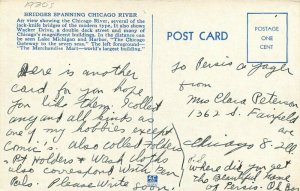 1930s
BRIDGES SPANNING CHICAGO RIVER
An view showing the Chicago River, several of the
jack-knife bridges of the modern type. It also shows
Wacker Drive, a double deck street and many of
Chicago's magnificent buildings. In the distance can
be seen Lake Michigan and Harbor, "The Chicago
Gateway to the seven seas." The left foreground—
"The Merchandise Mart—world's largest building."
POST CARD
PLACE
POSTAGE
ONE
CENT
Here is another
card for you hope
you like them. I collect
any and all kinds as
one of my hobbies except
Comic's. also collect folders
Pot Holders & Wash cloths
also correspond with Pen
Pals. Please Write soon!
to Persis
Miss Clara Peterson
1362 S. Fairfield
ave
Chicago 8. Ill
where did you get
the Beautiful name
of Persis